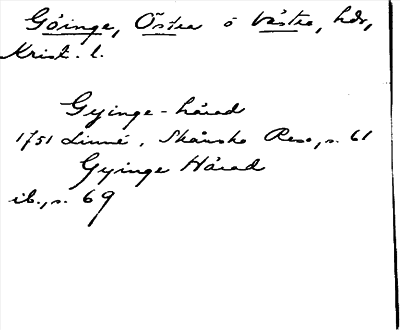 Göinge, Östra o Västra, hdr,
Krist. l.
Gyinge-härad
1751 Linné, Skånska Resa, s. 61
Gyinge Härad
ib., s. 69